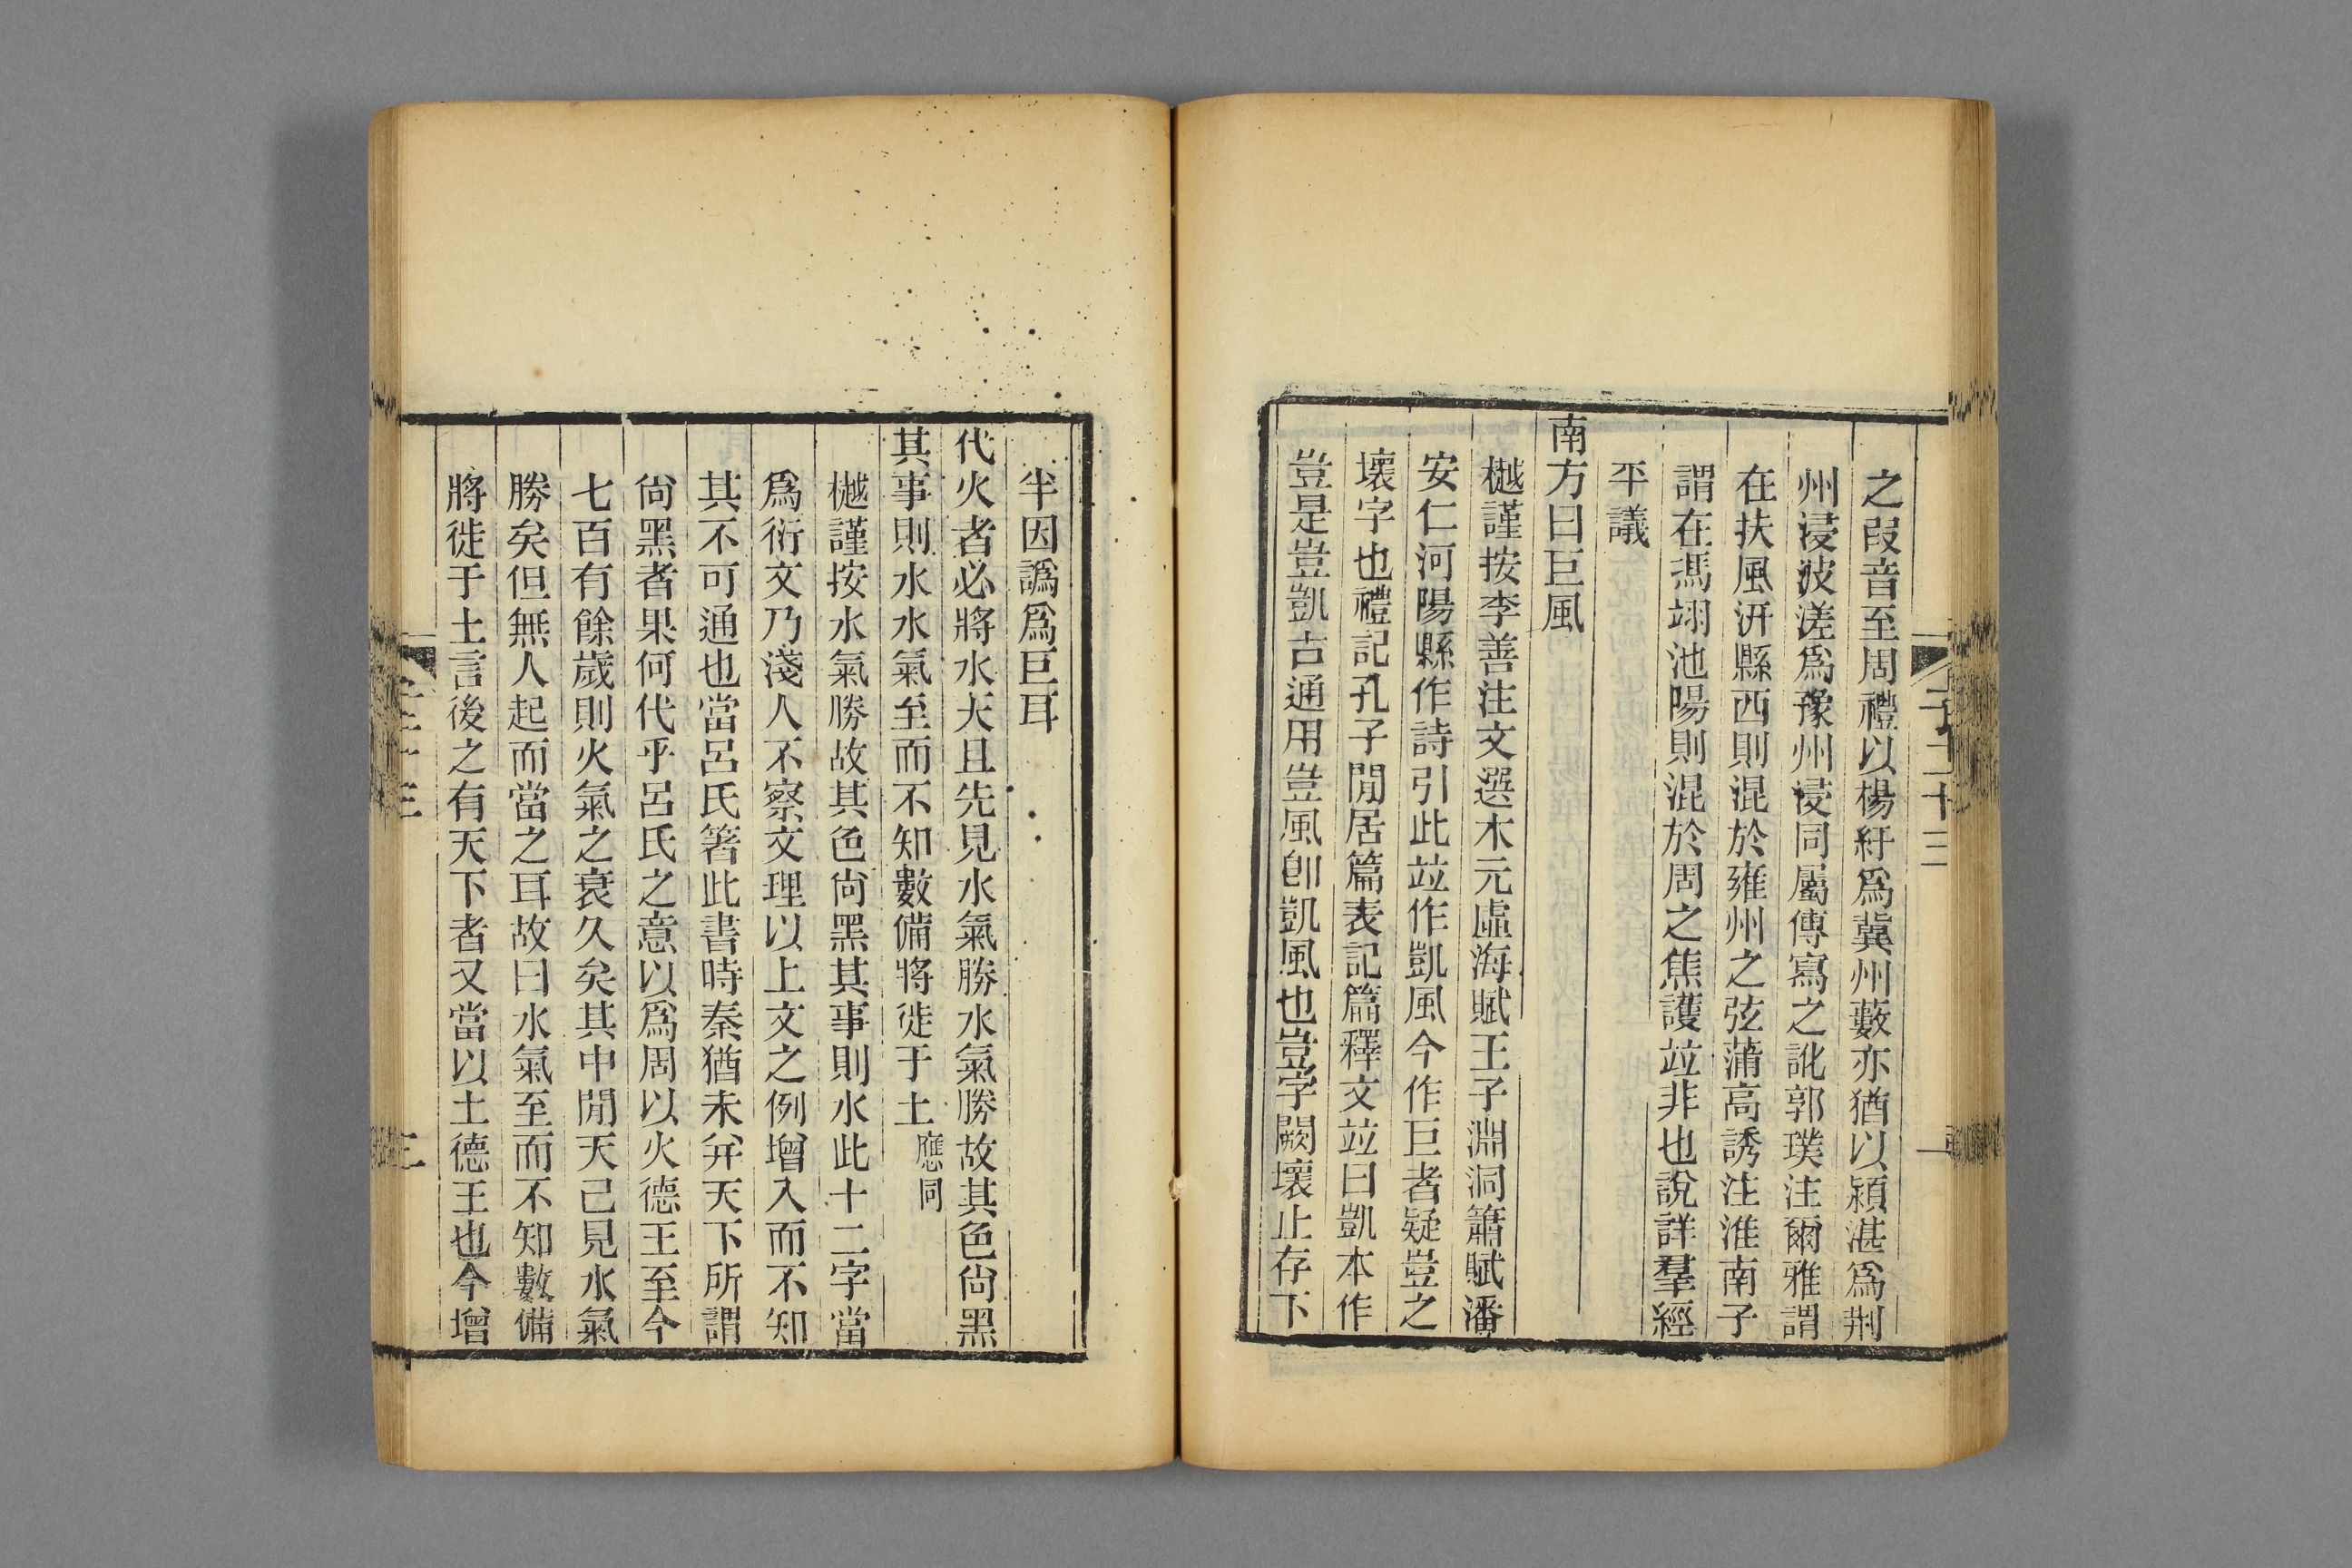 之叚音至周禮以楊紆爲冀州藪亦猶以潁湛爲荆
州浸波溠爲豫州浸同屬傳寫之訛郭璞注爾雅謂
在扶風汧縣西則混於雍州之弦蒲高誘注淮南子
謂在馮翊池陽則混於周之焦護竝非也說詳羣經
平議
南方曰巨風
樾謹按李善注文選木元虛海賦王子淵洞簫賦潘
安仁河陽縣作詩引此竝作凱風今作巨者疑豈之
壞字也禮記孔子閒居篇表記篇釋文竝曰凱本作
豈是豈凱古通用豈風卽凱風也豈字闕壞止存下
子二十三
半因譌爲巨耳
代火者必將水天且先見水氣勝水氣勝故其色尙黑
其事則水水氣至而不知數備將徙于土應同
樾謹按水氣勝故其色尙黑其事則水此十二字當
爲衍文乃淺人不察文理以上文之例增入而不知
其不可通也當呂氏箸此書時秦猶未幷天下所謂
尙黑者果何代乎呂氏之意以爲周以火德王至今
七百有餘歲則火氣之衰久矣其中閒天己見水氣
勝矣但無人起而當之耳故曰水氣至而不知數備
將徙于土言後之有天下者又當以土德王也今增